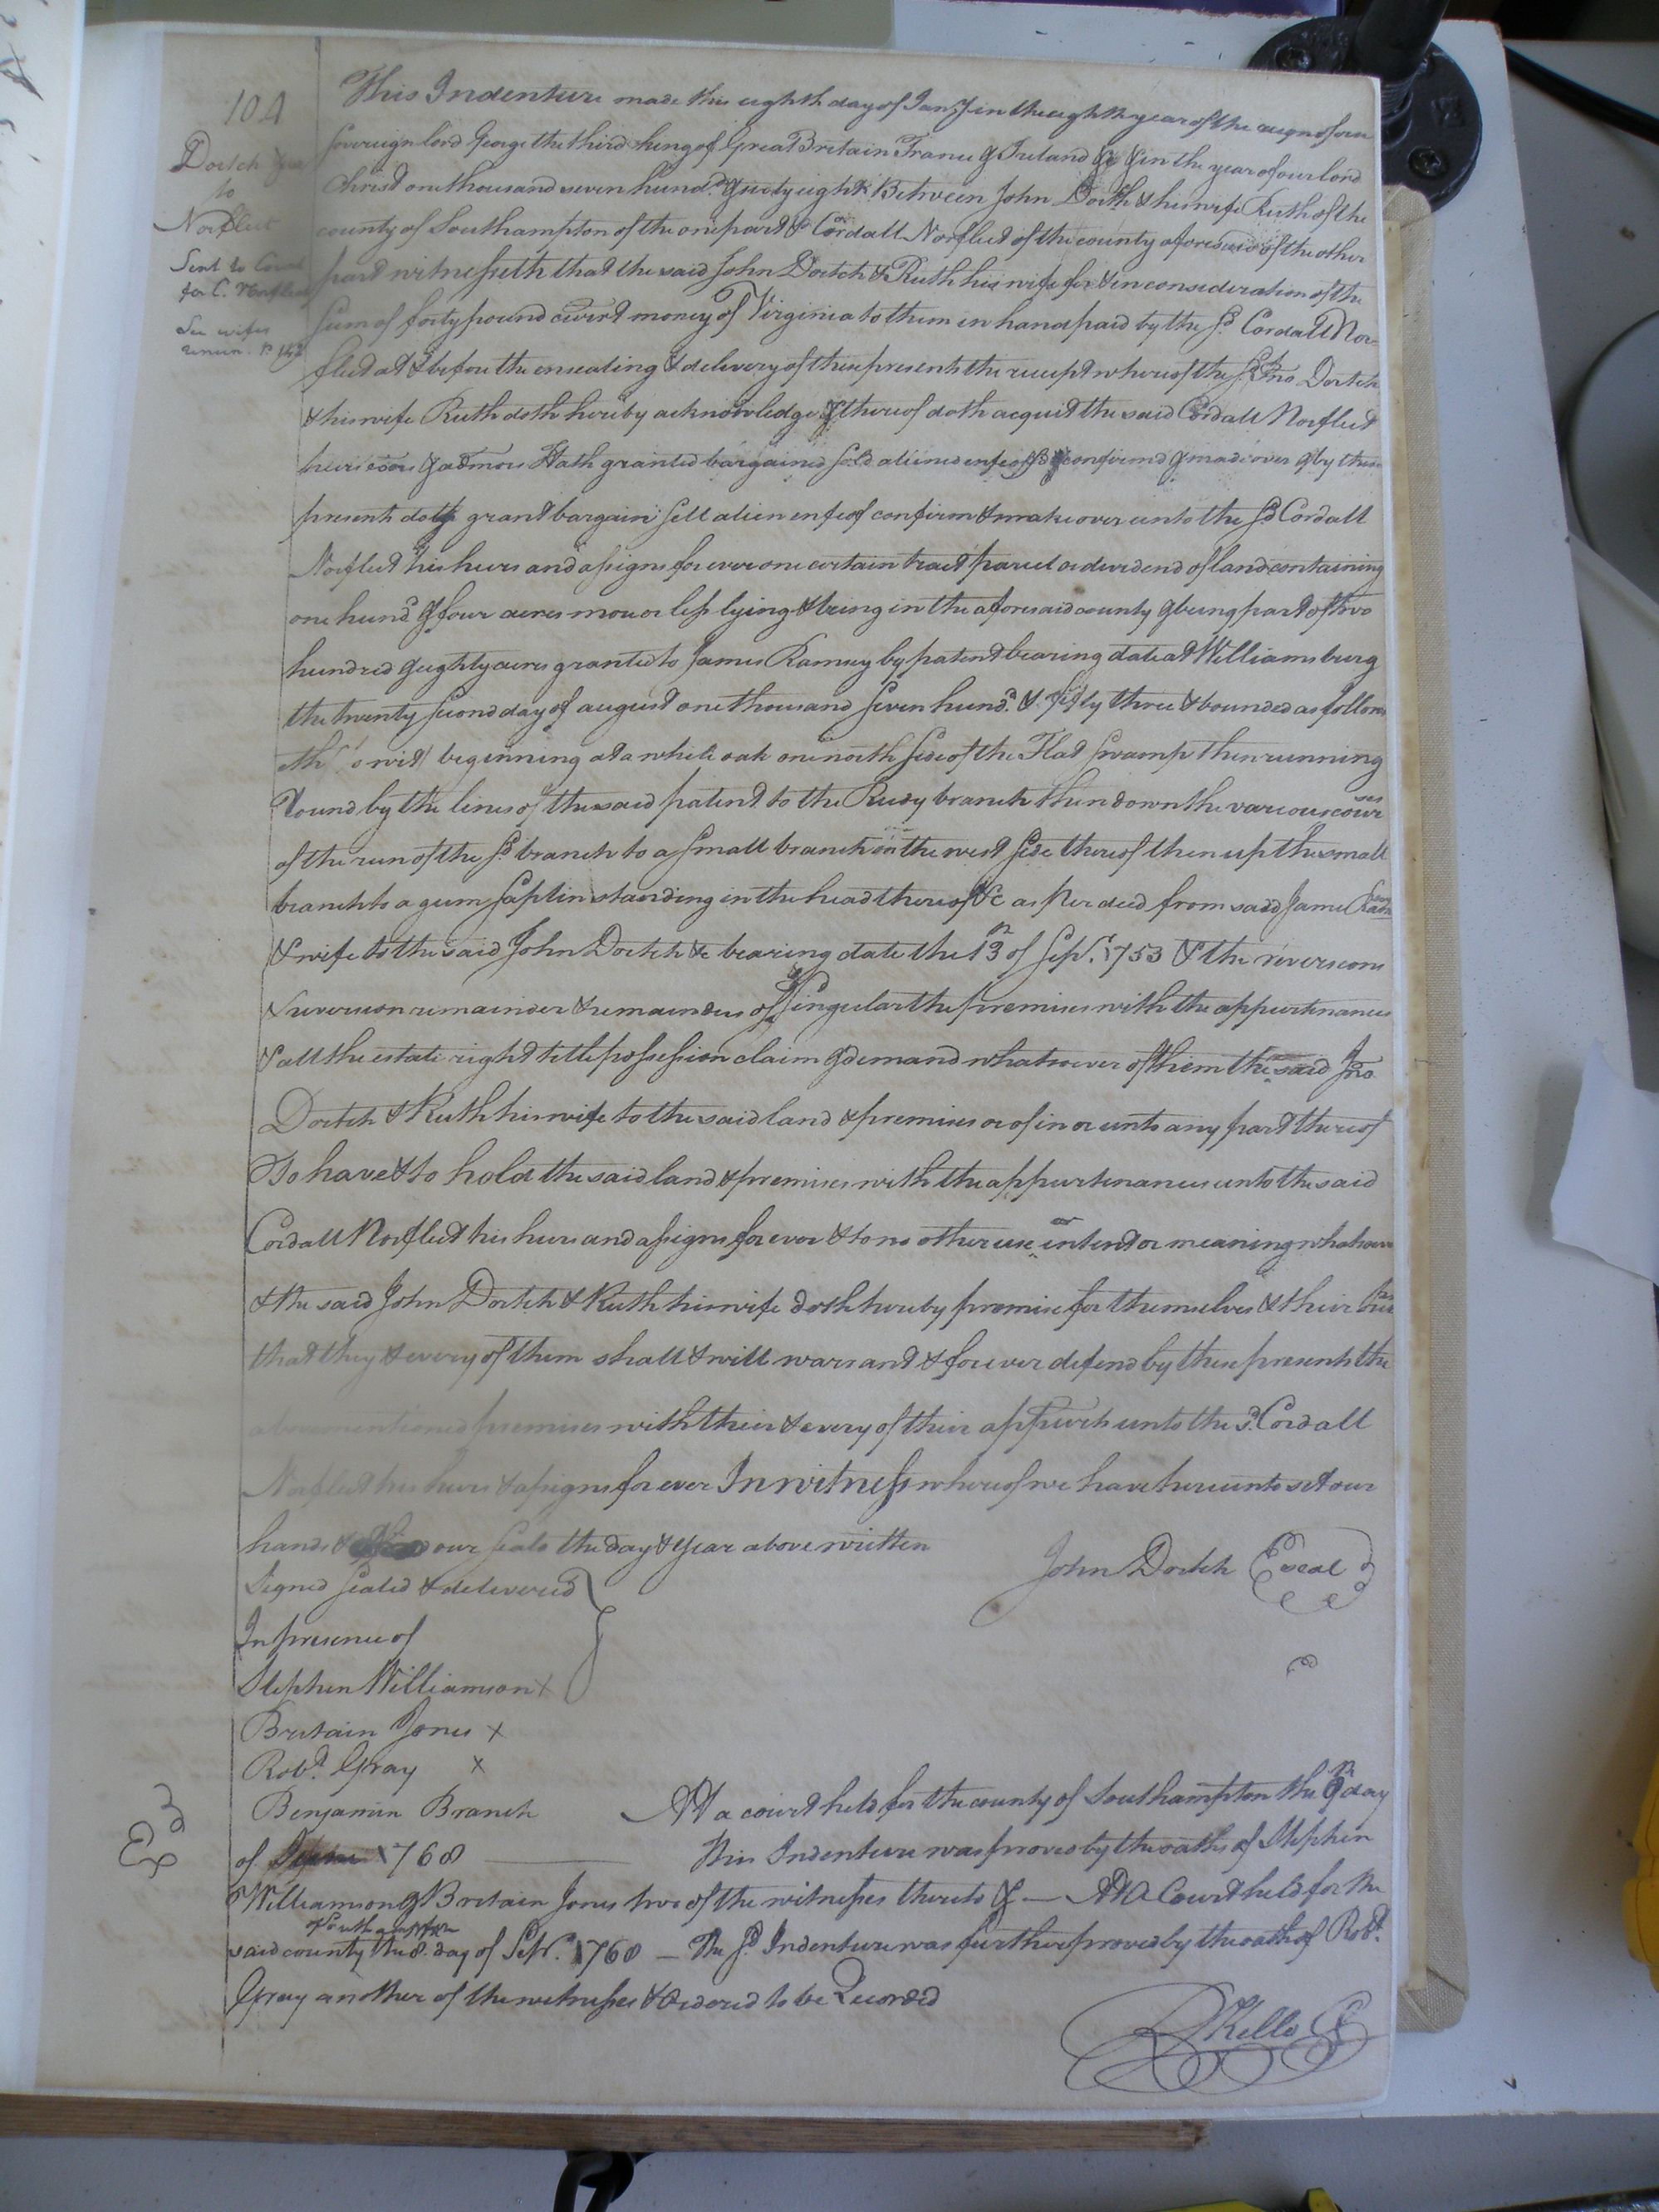 104
Dortch &ux
to
Norfleet
Sent to
for C. Norfleet
See wifes
This Indenture made this eighth day of Jany in the eighth year of the reign of our
sovereign lord George the third king of Great Britain France & Ireland &c & in the year of our lord
Christ one thousand seven hund.d & sixty eight Between John Dortch & his wife Ruth of the
county of Southampton of the one part & Cordall Norfleet of the county aforesaid of the other
part witnesseth that the said John Dortch & Ruth his wife for & in consideration of the
sum of forty pound curr.t money of Virginia to them in hand paid by the s.d Cordall Nor-
fleet at & before the ensealing & delivery of these presents the receipt whereof the s.d Jno Dortch
& his wife Ruth doth hereby acknowledge & thereof doth acquit the said Cordall Norfleet
heirs exors & admors Hath granted bargained sold aliened enfeoff.d & confirmd & made over & by these
presents doth grant bargain sell alien enfeof confirm & make over unto the s.d Cordall
Norfleet his heirs and assigns for ever one certain tract parcel or devidend of land containing
one hund.d & four acres more or less lying & being in the aforesaid county & being part of two
hundred & eighty acres granted to James Ramsey by patent bearing date at Williamsburg
the twenty second day of august one thousand seven hund.d & fifty three & bounded as follow
eth to wit beginning at a white oak one north side of the Flat swamp then running
round by the lines of the said patent to the Reedy branch then down the various courses
of the run of the s.d branch to a small branch on the west side thereof then up the small
branch to a gum saplin standing in the head thereof &c as per deed from said James
& wife to the said John Dortch &c bearing date the 13 of Sept. 1753 & the revercions
& revercion remainder & remainders of singular the premises with the appurtenances
& all the estate right title possession claim & demand whatsoever of them the said Jno
Dortch & Ruth his wife to the said land & premises or of in or unto any part thereof
To have & to hold the said land & premises with the appurtenances unto the said
Cordall Norfleet his heirs and assigns for ever & to no other use or intent or meaning whatsoever
& the said John Dortch & Ruth his wife doth hereby promise for themselves & their heirs
that they & every of them shall & will warrant & forever defend by these presents the
abovementioned premises with their & every of their appurts unto the s.d Cordall
Norfleet his heirs & assigns for ever In witness whereof we have hereunto set our
hands & our seals the day & year above written
John Dortch Seal
Signed sealed & delivered
In presence of
Stephen Williamson X
Britain Jones X
Rob.t Gray X
Benjamin Branch
At a court held for the county of Southampton the day
of 1768 — This Indenture was proved by the oaths of Stephen
Williamson & Britain Jones two of the witnesses thereto & — At a Court held for the
said county of Southampton the 8. day of Sept. 1768 — The s.d Indenture was further proved by the oath of Rob.t
Gray another of the witnesses & Ordered to be Recorded
Ex.d
R Kello C